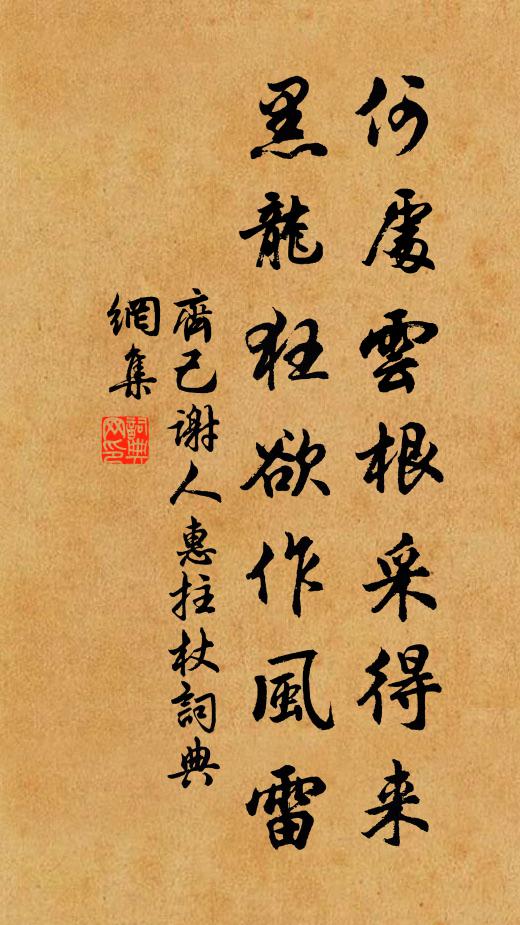 何處雲根采得来
黑龍狂欲作風雷
齊己謝人惠拄杖詞典
網集
詞典网印